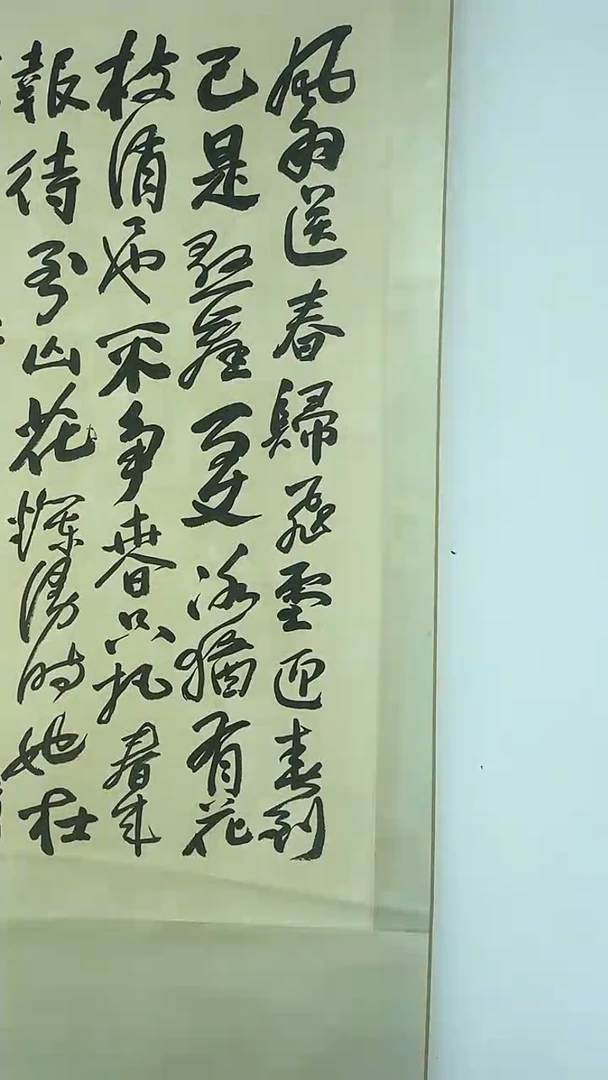 風雨送春歸飛雪迎春到
已是懸崖百丈冰猶有花
枝俏也不争春只把春來
報待到山花爛漫時她在